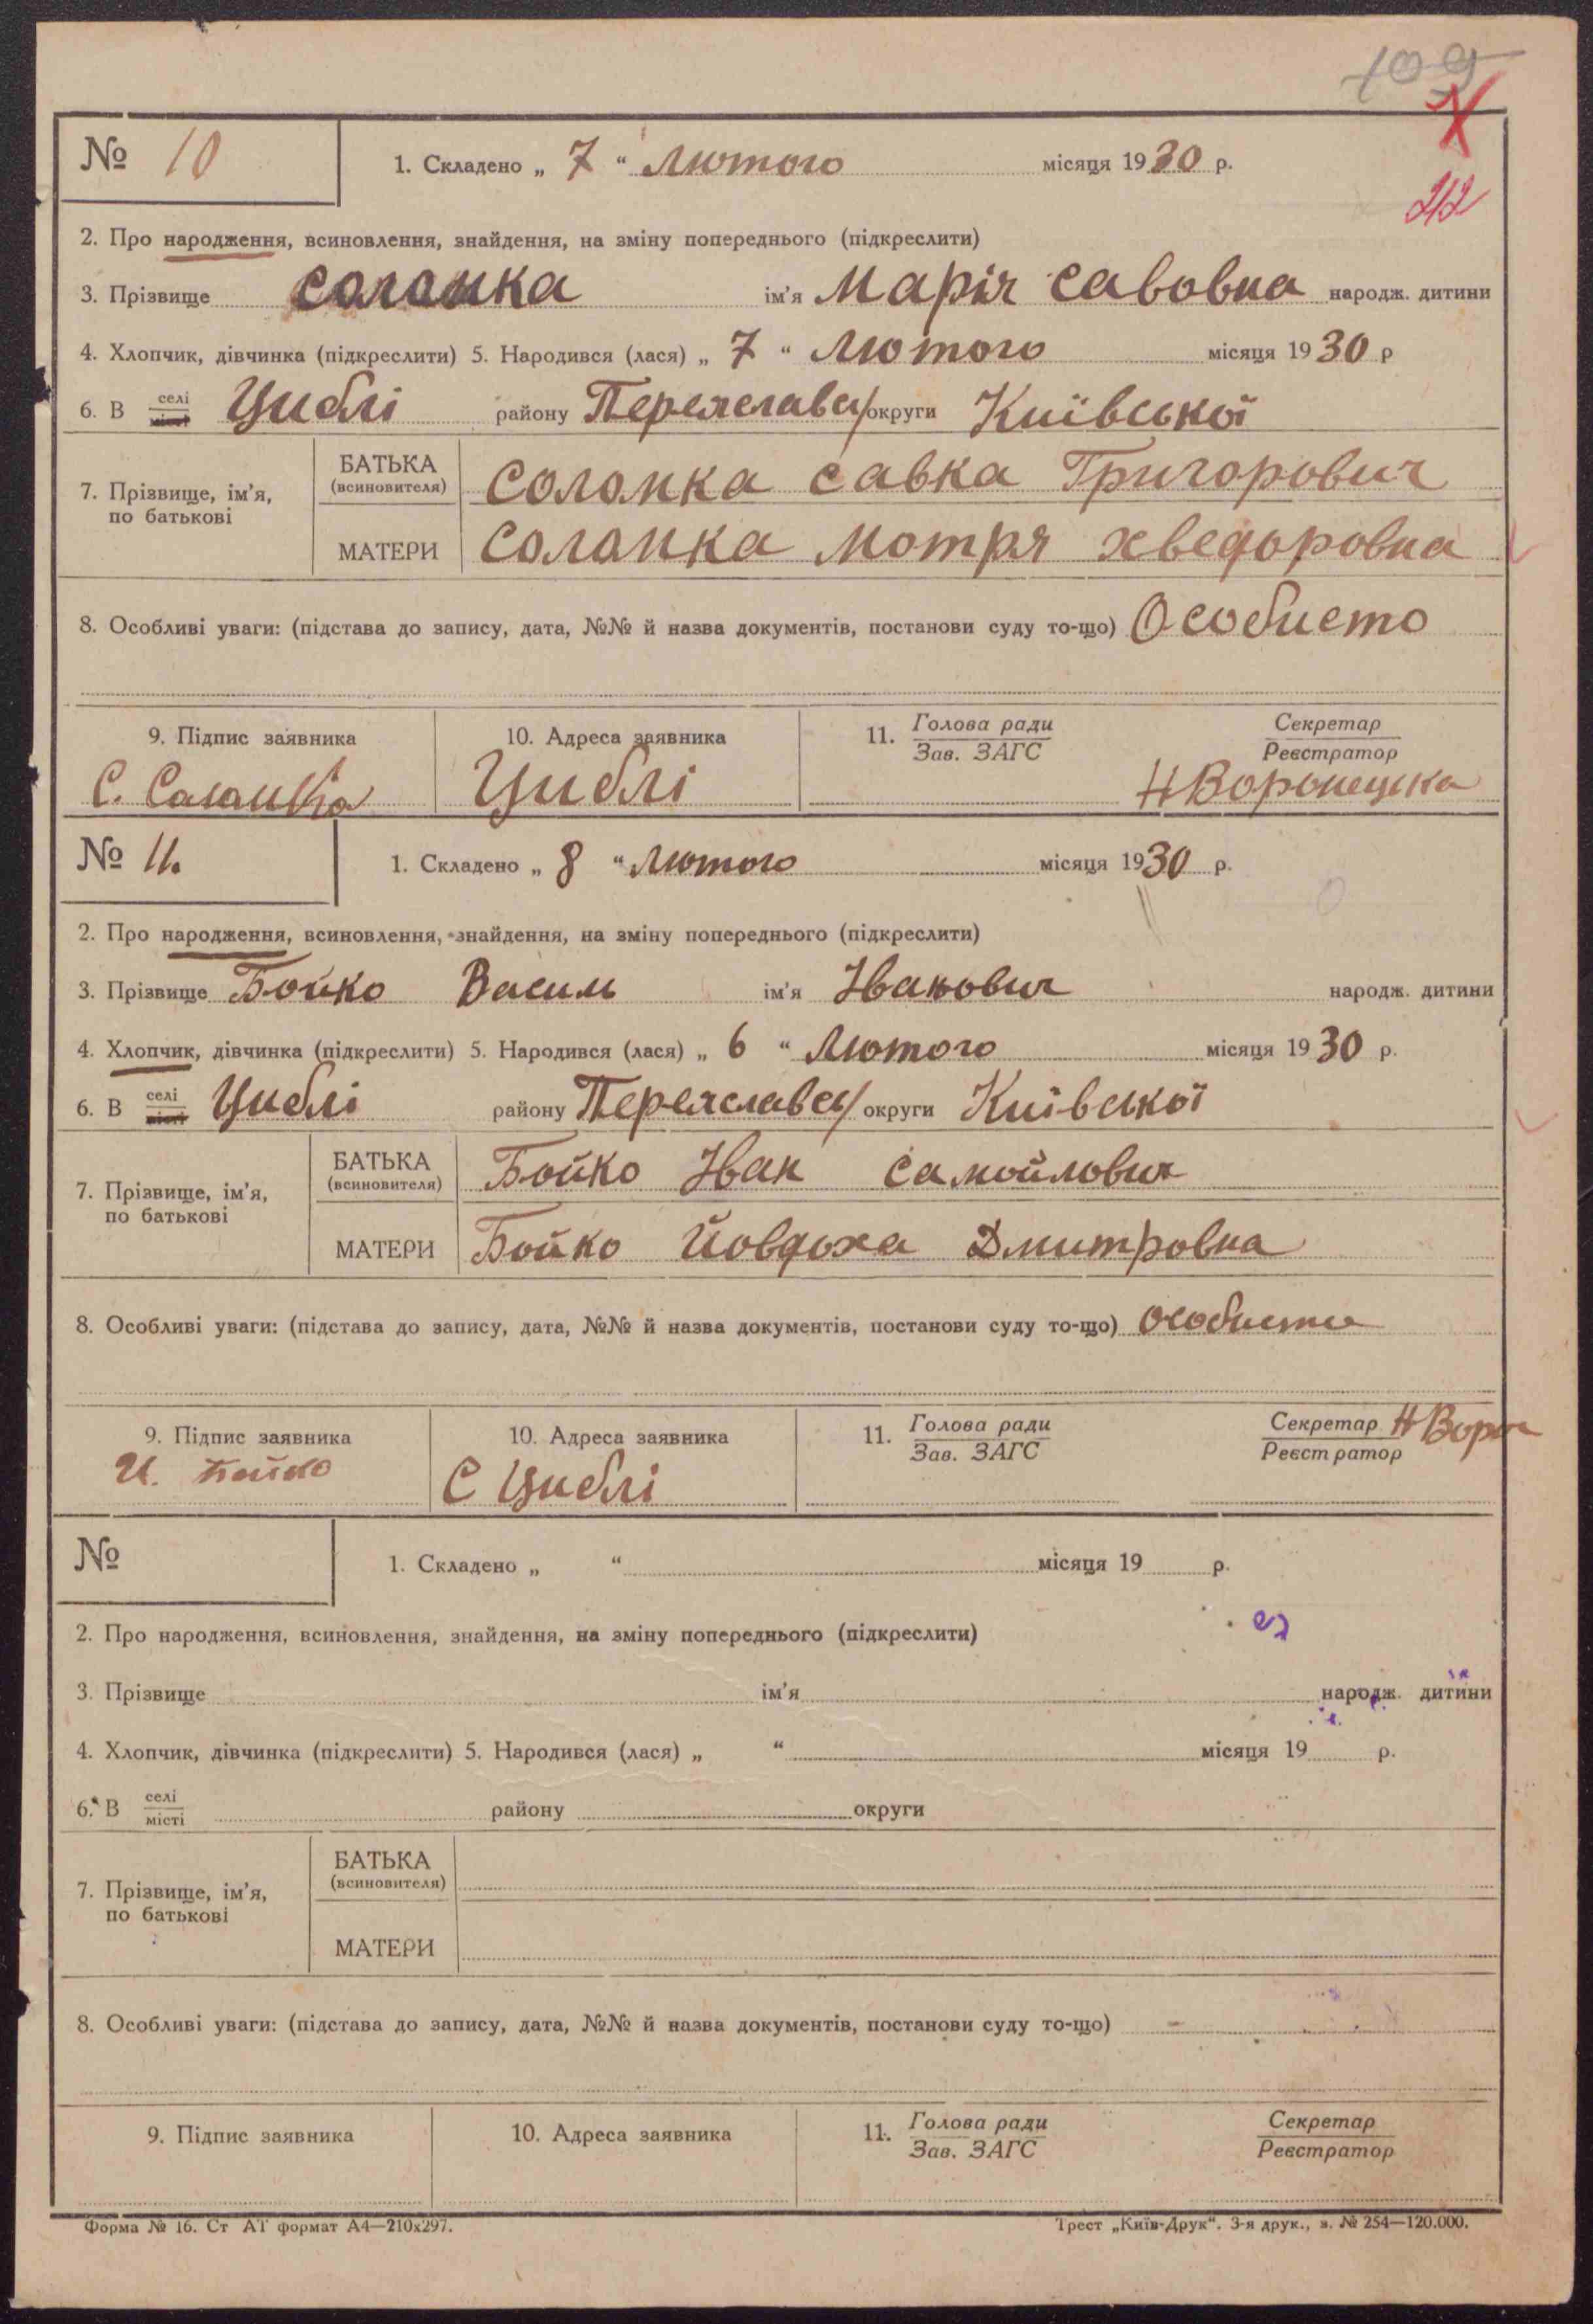 109
X
212
№ 10
1. Складено „ 7 “ Лютого місяця 1930 р.
2. Про народження, всиновлення, знайдення, на зміну попереднього (підкреслити)
3. Прізвище Соломка ім'я Марія Савовна народж. дитини
4. Хлопчик, дівчинка (підкреслити) 5. Народився (лася) „ 7 “ Лютого місяця 1930 р
6. В селі/місті Циблі району Переяславсь/ округи Київської
7. Прізвище, ім'я, по батькові
БАТЬКА (всиновителя) Соломка Савка Григорович
МАТЕРИ Соломка Мотря Хведоровна
8. Особливі уваги: (підстава до запису, дата, №№ й назва документів, постанови суду то-що) Особисто
9. Підпис заявника 10. Адреса заявника 11. Голова ради/Зав. ЗАГС Секретар/Реєстратор
С. Соломка Циблі НВоронецька
№ 11.
1. Складено „ 8 “ Лютого місяця 1930 р.
2. Про народження, всиновлення, знайдення, на зміну попереднього (підкреслити)
3. Прізвище Бойко Василь ім'я Іванович народж. дитини
4. Хлопчик, дівчинка (підкреслити) 5. Народився (лася) „ 6 “ Лютого місяця 1930 р.
6. В селі/місті Циблі району Переяславсь/ округи Київської
7. Прізвище, ім'я, по батькові
БАТЬКА (всиновителя) Бойко Іван Самойлович
МАТЕРИ Бойко Йовдоха Дмитровна
8. Особливі уваги: (підстава до запису, дата, №№ й назва документів, постанови суду то-що) особисто
9. Підпис заявника 10. Адреса заявника 11. Голова ради/Зав. ЗАГС Секретар/Реєстратор НВорон
И. Бойко С Циблі
№
1. Складено „ “ місяця 19 р.
2. Про народження, всиновлення, знайдення, на зміну попереднього (підкреслити)
3. Прізвище ім'я народж. дитини
4. Хлопчик, дівчинка (підкреслити) 5. Народився (лася) „ “ місяця 19 р.
6. В селі/місті району округи
7. Прізвище, ім'я, по батькові
БАТЬКА (всиновителя)
МАТЕРИ
8. Особливі уваги: (підстава до запису, дата, №№ й назва документів, постанови суду то-що)
9. Підпис заявника 10. Адреса заявника 11. Голова ради/Зав. ЗАГС Секретар/Реєстратор
Форма № 16. Ст АТ формат А4—210х297. Трест „Київ-Друк“. 3-я друк., з. № 254—120.000.